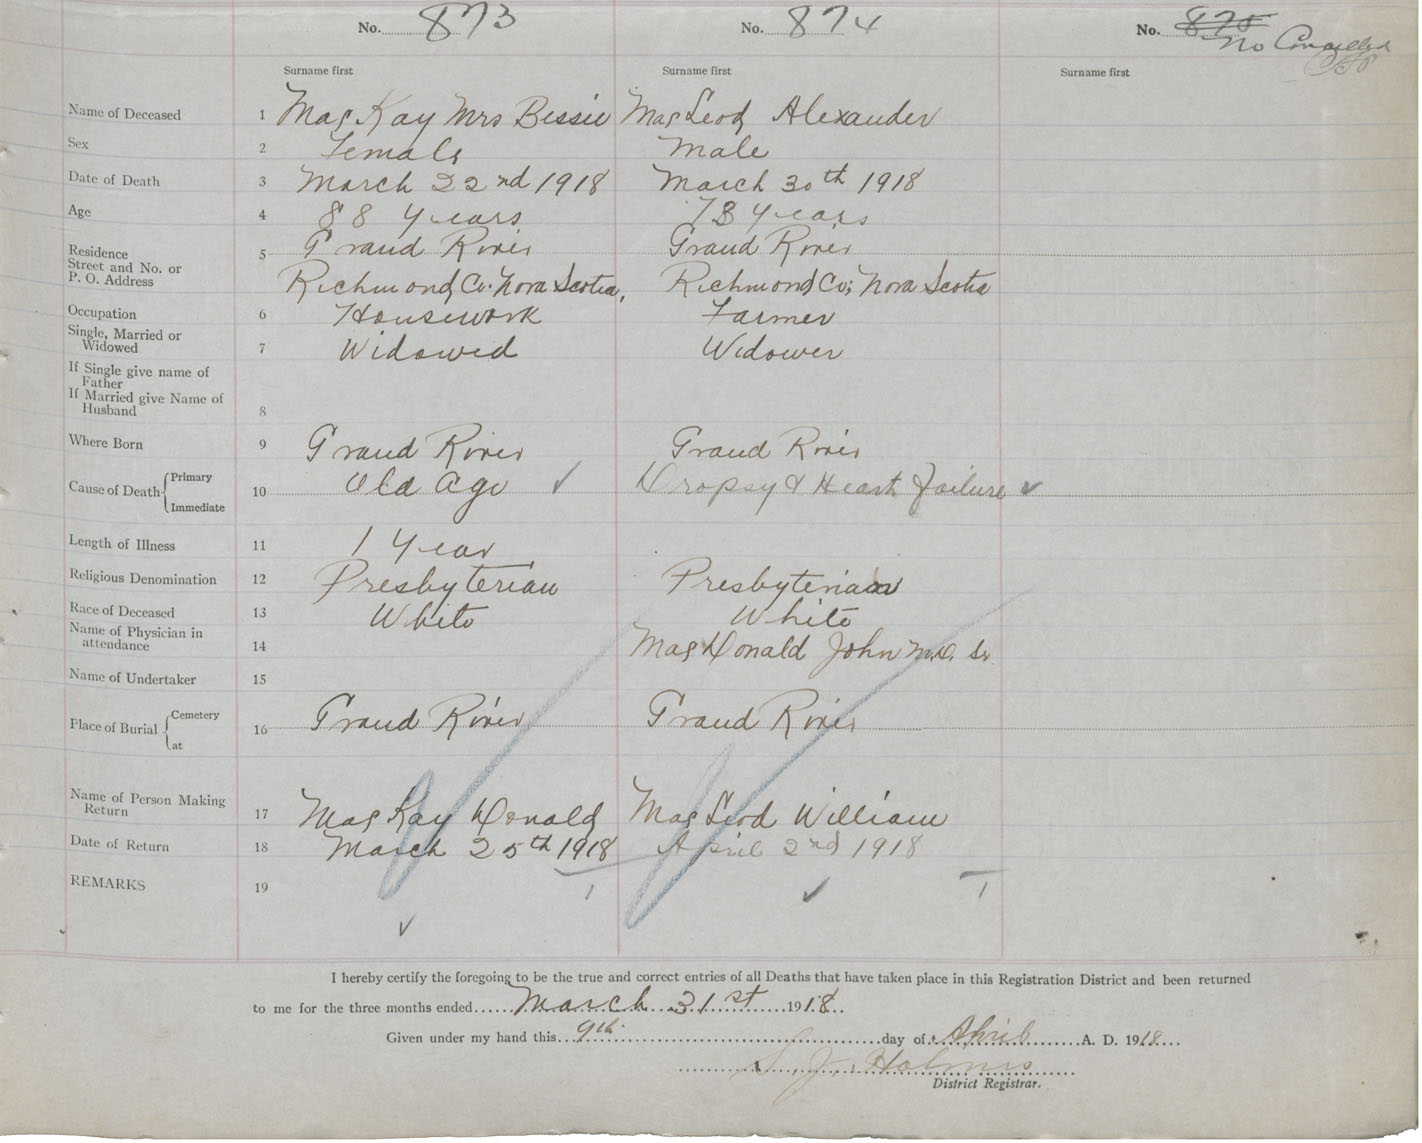 No. 873 No. 874 No. 875
No Cancelled
Surname first Surname first Surname first
Name of Deceased 1 MacKay Mrs Bessie MacLeod Alexander
Sex 2 Female Male
Date of Death 3 March 22nd 1918 March 30th 1918
Age 4 88 years 78 years
Residence 5 Grand River Grand River
Street and No. or
P. O. Address Richmond Co. Nova Scotia, Richmond Co; Nova Scotia
Occupation 6 Housework Farmer
Single, Married or
Widowed 7 Widowed Widower
If Single give name of
Father
If Married give Name of
Husband 8
Where Born 9 Grand River Grand River
Cause of Death Primary
Immediate 10 Old Age ✓ Dropsy & Heart Failure ✓
Length of Illness 11 1 Year
Religious Denomination 12 Presbyterian Presbyterian
Race of Deceased 13 White White
Name of Physician in
attendance 14 MacDonald John M.D. Sr
Name of Undertaker 15
Place of Burial Cemetery
at 16 Grand River Grand River
Name of Person Making
Return 17 MacKay Donald MacLeod William
Date of Return 18 March 25th 1918 April 2nd 1918
REMARKS 19
I hereby certify the foregoing to be the true and correct entries of all Deaths that have taken place in this Registration District and been returned
to me for the three months ended March 31st 1918
Given under my hand this 9th day of April A. D. 1918
S. J. Holmes
District Registrar.